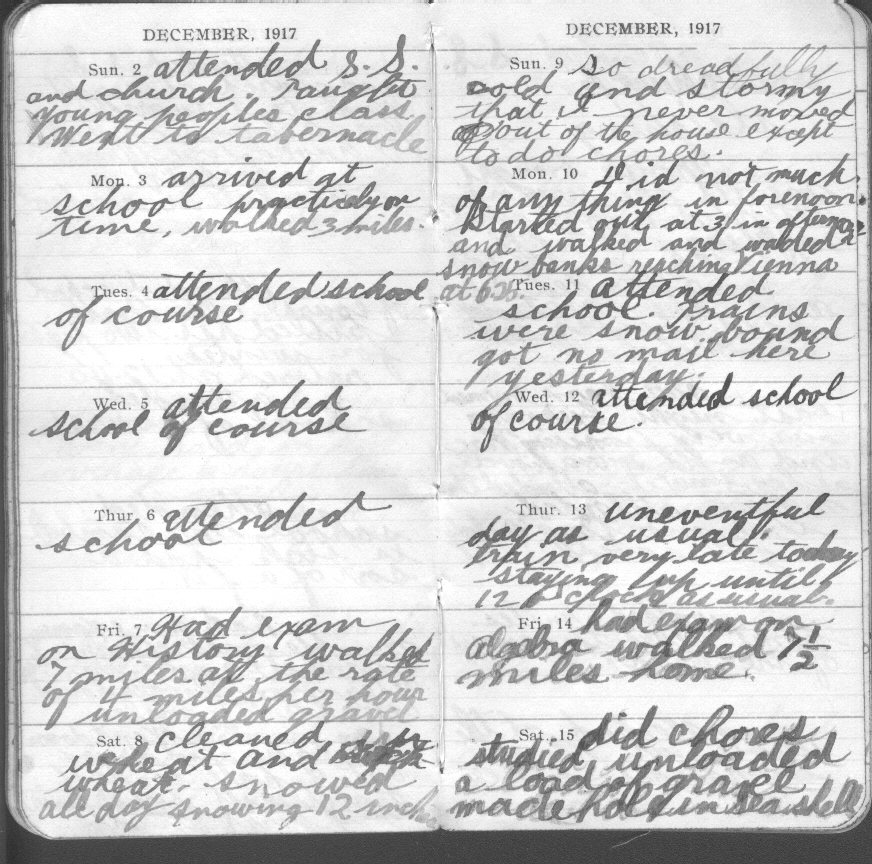 DECEMBER, 1917
Sun. 2 attended S. S.
and church. Taught
young peoples class
Went to tabernacle
Mon. 3 arrived at
school practicaly on
time, walked 3 miles.
Tues. 4 attended school
of course
Wed. 5 attended
school of course
Thur. 6 attended
school
Fri. 7 Had exam
on History walked
7 miles at the rate
of 4 miles per hour
unloaded gravel
Sat. 8 cleaned
wheat and
wheat. snowed
all day snowing 12 inches
DECEMBER, 1917
Sun. 9 So dreadfully
cold and stormy
that I never moved
out of the house except
to do chores.
Mon. 10 Did not much
of any thing in forenoon.
Started out at 3 in afternoon
and walked and waded
snow banks reaching Vienna
at
Tues. 11 attended
school. Trains
were snow bound
got no mail here
yesterday.
Wed. 12 attended school
of course.
Thur. 13 uneventful
day as usual.
train very late today
staying up until
12 o clock as usual.
Fri. 14 had exam on
algebra walked 7 1/2
miles home.
Sat. 15 did chores
studied unloaded
a load of gravel
made hole in sea shell